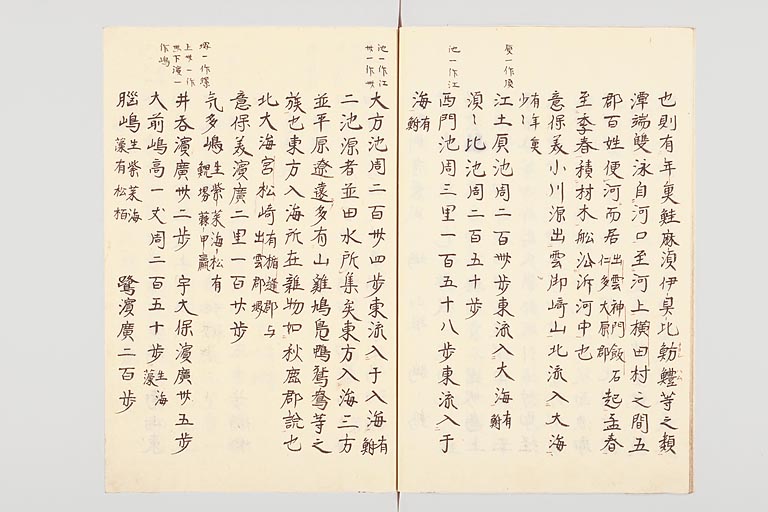 也則有年魚鮭麻須伊具比魴鱧等之類
潭端雙泳自河口至河上横田村之間五
郡百姓便河而居出雲神門飯石仁多大原郡起孟春
至季春積材木舩沿泝河中也
意保美小川源出雲御﨑山北流入大海
有年魚少々
江土原池周二百卌步東流入大海有鮒
須々比池周二百五十步
西門池周三里一百五十八步東流入于
海有鮒
原一作須
池一作江
大方池周二百卅四步東流入于入海有鮒
二池源者並田水所集矣東方入海三方
並平原遼遠多有山雞鳩鳬鴨鴛鴦等之
族也東方入海所在雜物如秋鹿郡說也
北大海宮松﨑有楯縫郡与出雲郡堺
意保美濱廣二里一百廿步
氣多嶋生紫菜海松有鮑螺蕀甲蠃
井呑濱廣卌二步 宇大保濱廣卅五步
大前嶋高一丈周二百五十步生海藻
腦嶋生紫菜海藻有松栢 鷺濱廣二百步
池一作江
卅一作卌
上卌一作
無下濱一
作嶋